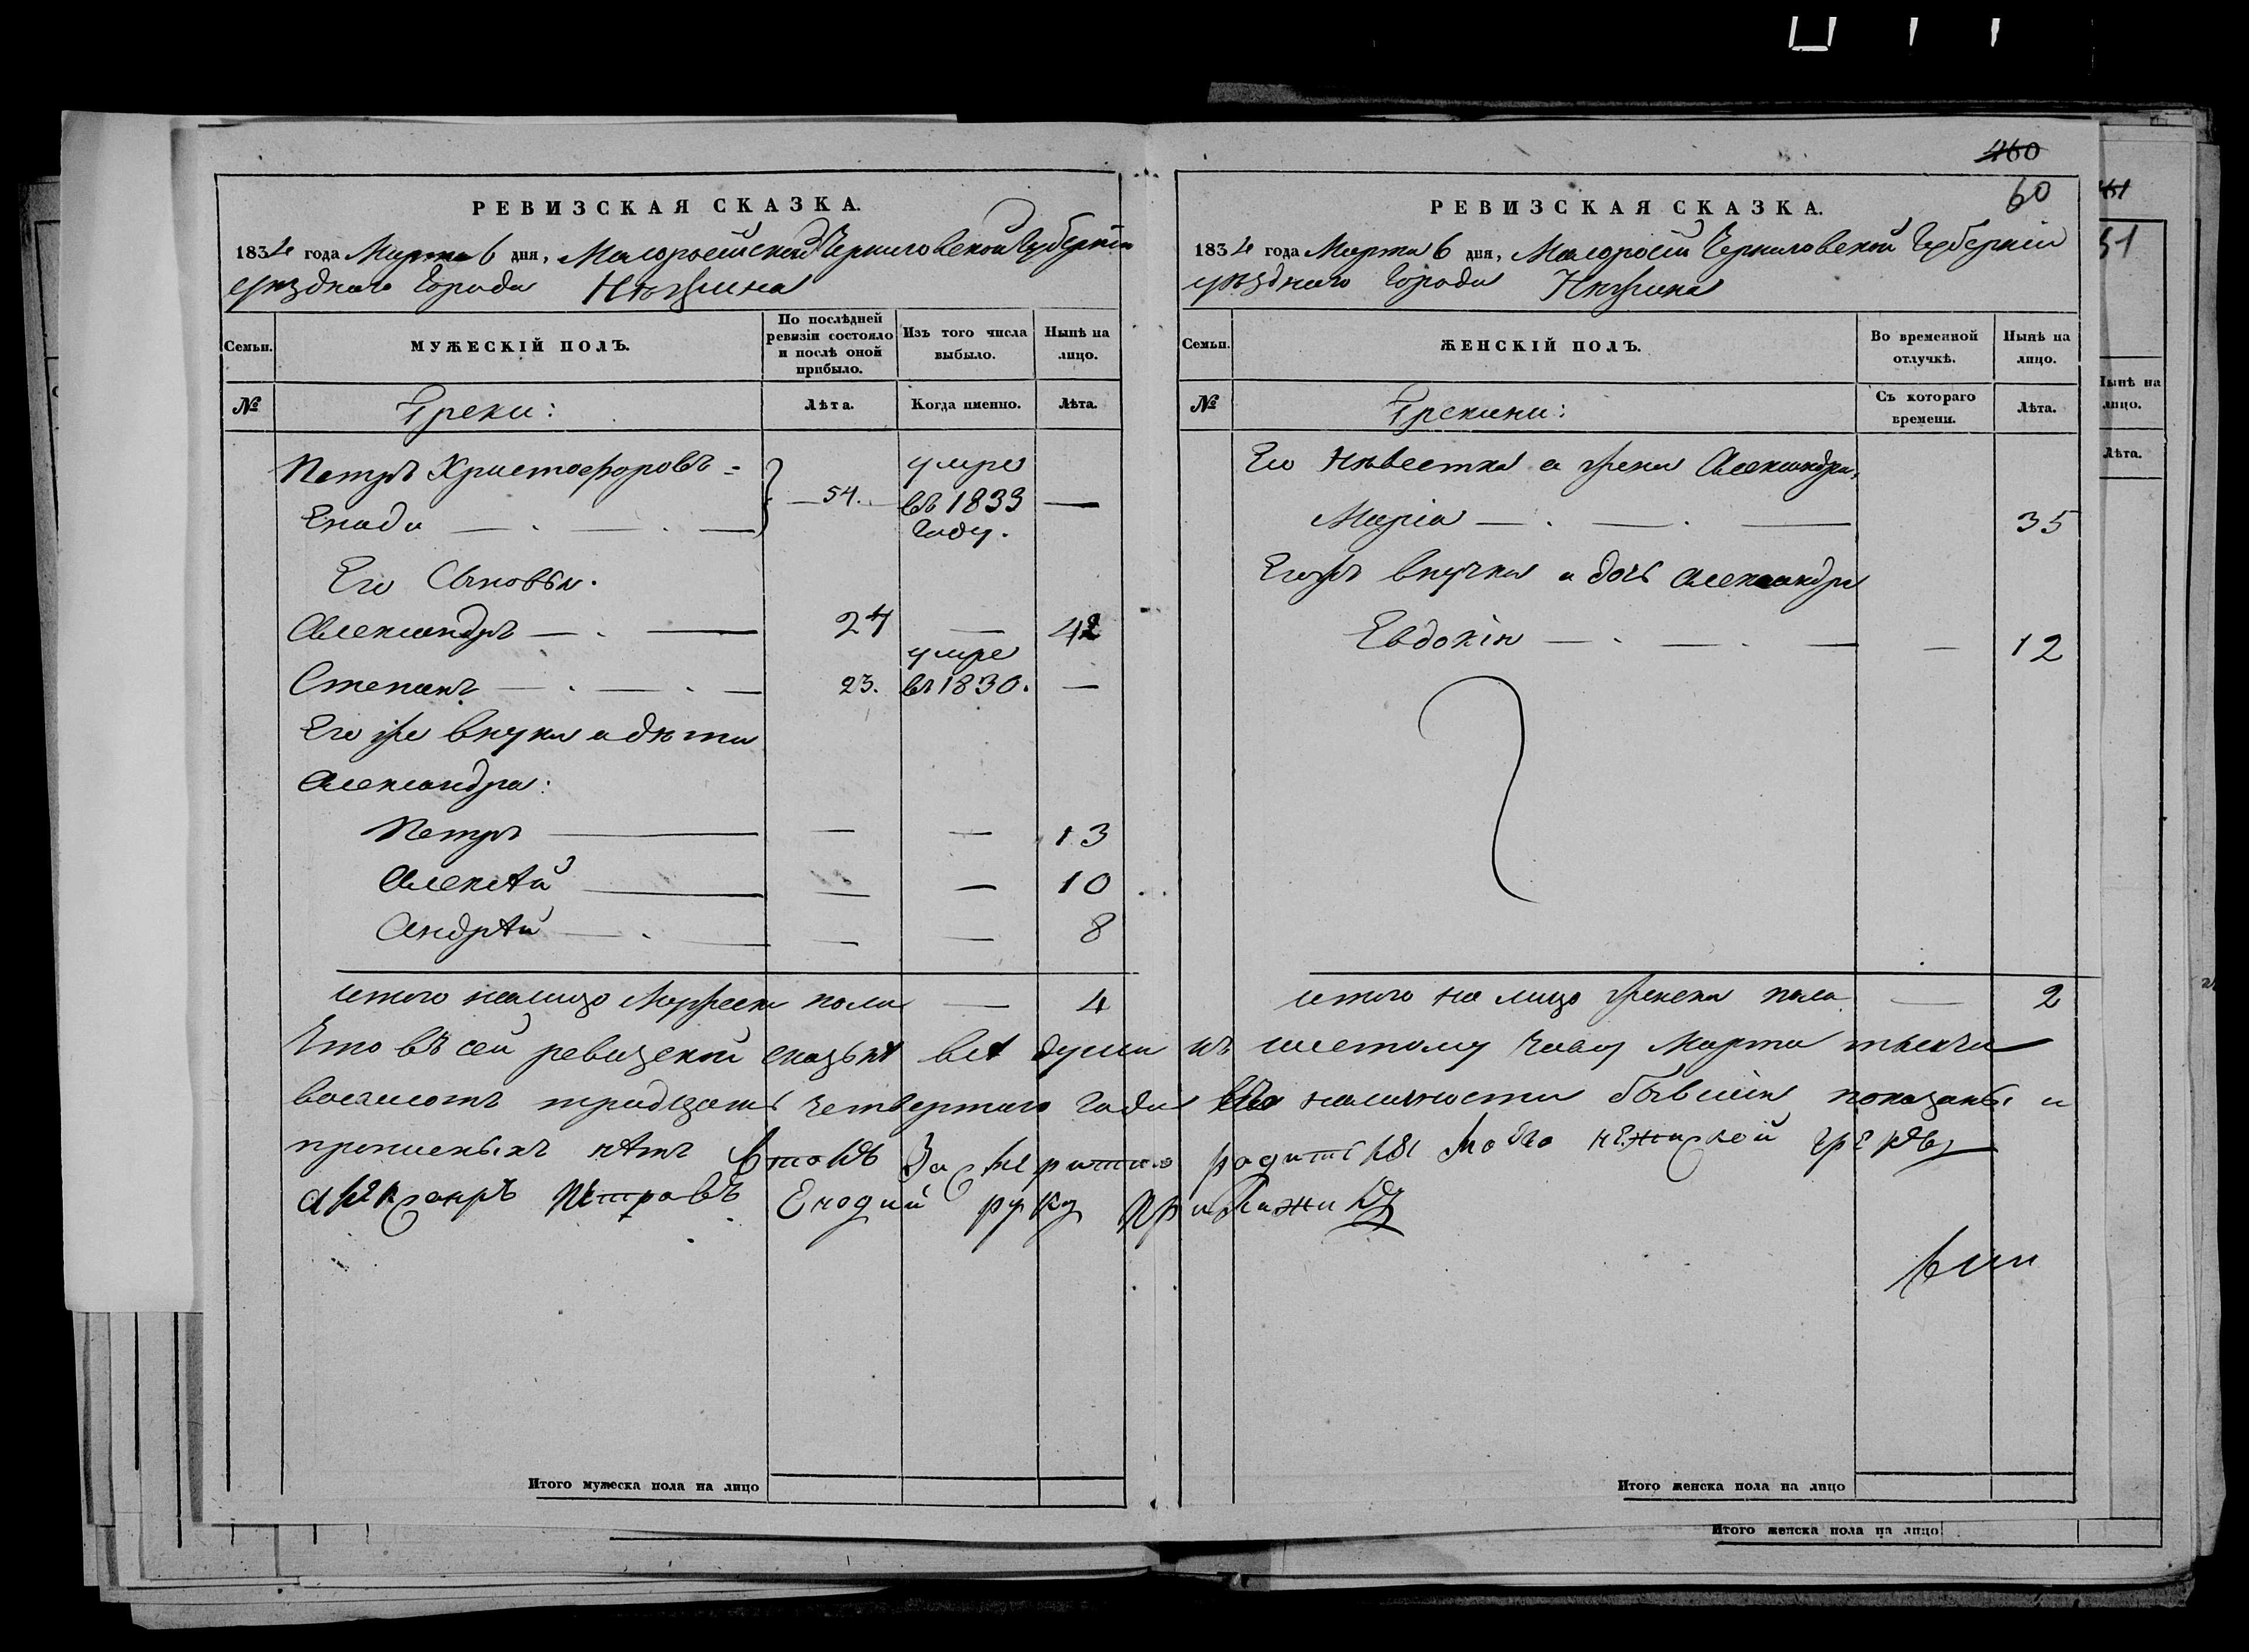 460
60
РЕВИЗСКАЯ СКАЗКА.
1834 года Марта 6 дня, Малоросійской Черниговской Губерніи
уѣзднаго Города Нѣжина
Семьи.
МУЖЕСКІЙ ПОЛЪ.
По послѣдней ревизіи состояло и послѣ оной прибыло.
Изъ того числа выбыло.
Нынѣ на лицо.
№
Греки:
Лѣта.
Когда именно.
Лѣта.
Петръ Христофоровъ
Енади — 54. умре въ 1833 году. —
Его Сыновья.
Александръ — 24 — 42
Степанъ — 23. умре въ 1830. —
Его же внуки а дѣти
Александра:
Петръ — — — 13
Алексѣй — — — 10
Андрѣй — — — 8
итого налицо Мужеска пола — 4
РЕВИЗСКАЯ СКАЗКА.
1834 года Марта 6 дня, Малоросій Черниговской Губерніи
уѣзднаго Города Нѣжина
Семьи.
ЖЕНСКІЙ ПОЛЪ.
Во временной отлучкѣ.
Нынѣ на лицо.
№
Грекини:
Съ котораго времени.
Лѣта.
Его Невестка а жена Александра,
Марiа — 35
Егожъ внучка а дочь Александра
Евдокія — — 12
итого на лицо женска пола — 2
Что въ сей ревизской сказкѣ всѣ души къ шестому числу Марта тысяча
восемсотъ тридцать четвертаго года въ наличности бывшія показаны и
прописныхъ нѣтъ
Петровъ Енадий руку
Итого мужеска пола на лицо
Итого женска пола на лицо
51
Нынѣ на лицо.
Лѣта.
Итого женска пола на лицо